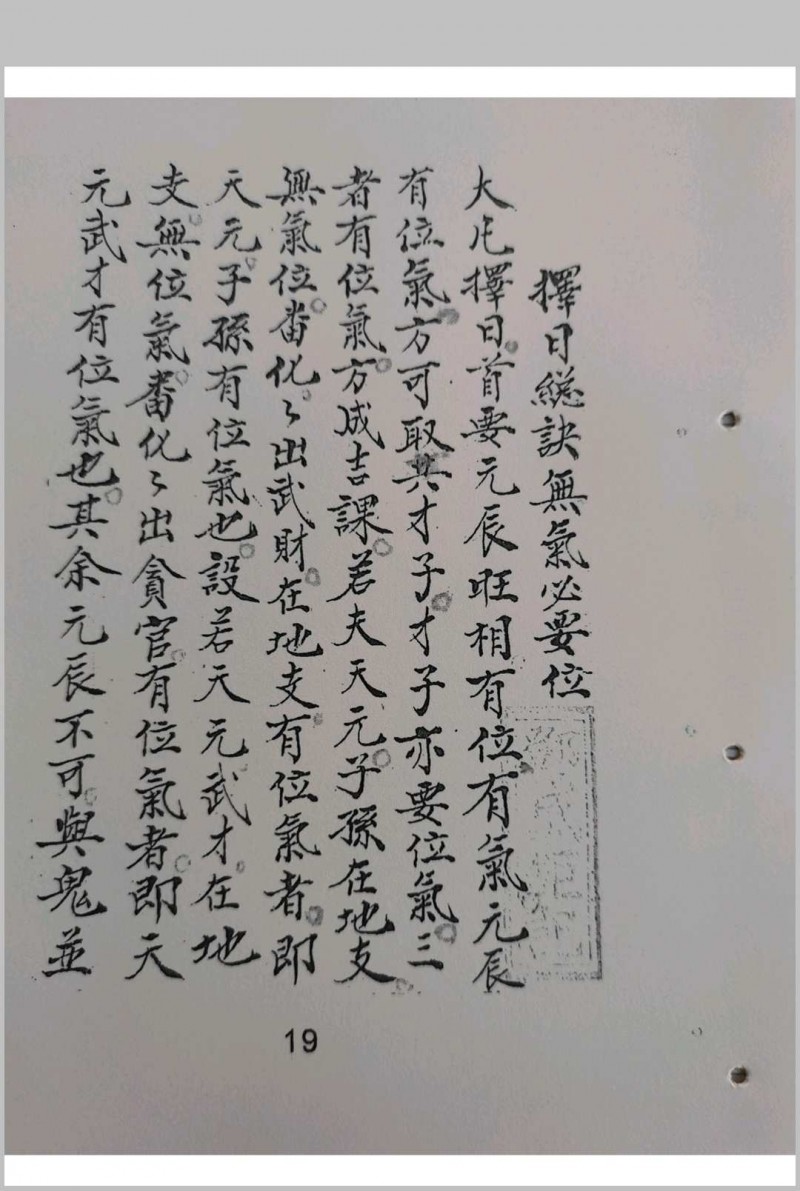 擇日縂訣無氣必要位
大凡擇日首要元辰旺相有位有氣元辰
有位氣方可取其才子才子亦要位氣三
者有位氣方成吉課若夫天元子孫在地支
無氣位畨化〻出武財在地支有位氣者即
天元子孫有位氣也設若天元武才在地
支無位氣畨化〻出貪官有位氣者即天
元武才有位氣也其余元辰不可與鬼並
19